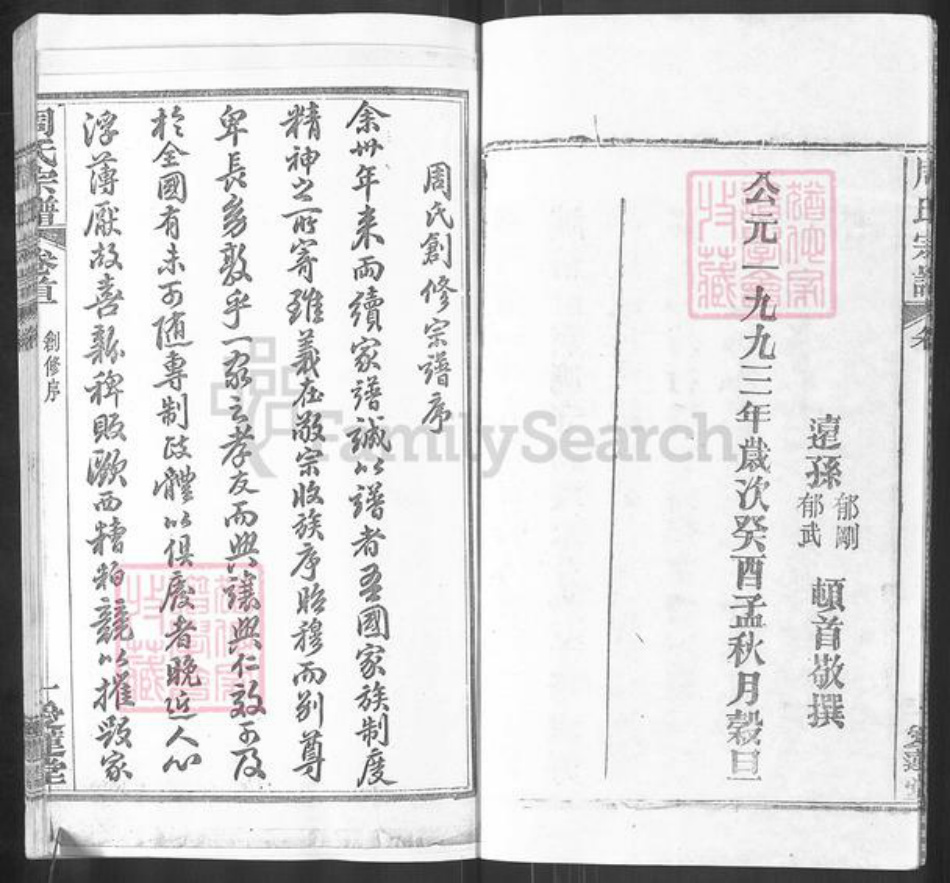 周氏宗譜
遠孫 郁剛 郁武 頓首敬撰
公元一九九三年歲次癸酉孟秋月穀旦
周氏創修宗譜序
余卅年来両續家譜誠以譜者吾國家族制度
精神之所寄雖義在敬宗收族序昭穆而别尊
卑長身敦乎一家之孝友而興讓興仁效可及
扵全國有未可随專制政體以俱廢者晚近人心
浮薄厭故喜新稗販歐西糟粕競以摧毀家
周氏宗譜 卷首 創修序 一 愛蓮堂
FamilySearch